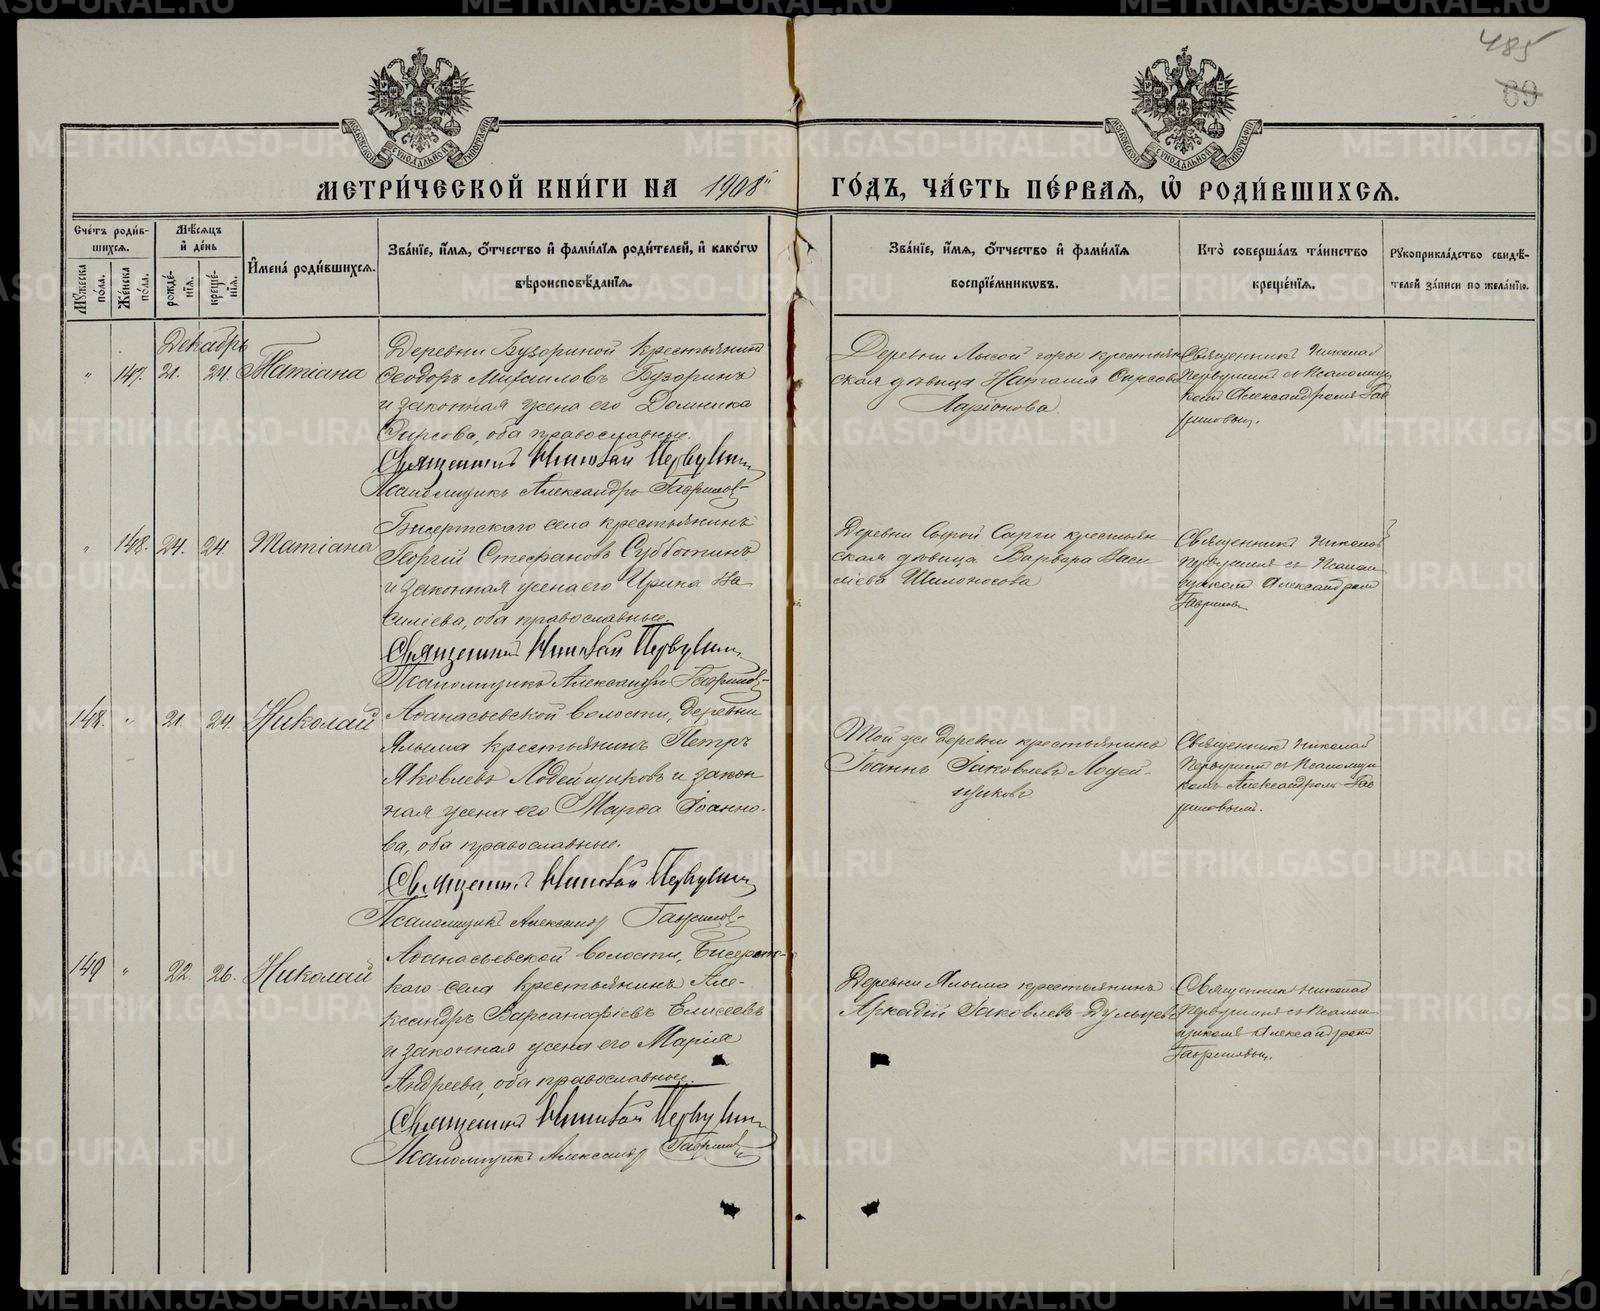 485
69
МОСКОВСКОЙ СѴНОДАЛЬНОЙ ТИПОГРАФІИ
МОСКОВСКОЙ СѴНОДАЛЬНОЙ ТИПОГРАФІИ
МЕТРИ́ЧЕСКОЙ КНИ́ГИ НА 1908й ГО́ДЪ, ЧА́СТЬ ПЕ́РВАѦ, Ѡ҆ РОДИ́ВШИХСѦ.
Сче́тъ роди́в-
шихсѧ.
Мꙋ́жеска по́ла.
Же́нска по́ла.
Мѣ́сѧцъ
и҆ де́нь
рожде́-
нїѧ.
креще́-
нїѧ.
И҆мена̀ роди́вшихсѧ.
Зва́нїе, и҆́мѧ, ѻ҆́тчество и҆ фами́лїѧ роди́телей, и҆ како́гѡ
вѣроисповѣ́данїѧ.
Зва́нїе, и҆́мѧ, ѻ҆́тчество и҆ фами́лїѧ
воспрїе́мникѡвъ.
Кто̀ соверша́лъ та́инство
креще́нїѧ.
Рꙋкоприкла́дство свидѣ́-
телей за́писи по жела́нїю.
Декабрь
" 147. 21. 24. Татіана
Деревни Бузориной крестьянинъ
Ѳеодоръ Михаиловъ Бузоринъ
и законная жена его Домника
Фирсова, оба православные.
Священникъ Николай Первушинъ
Псаломщикъ Александръ Гавриловъ
Деревни Лысой горы крестьян
ская дѣвица Наталия Фирсова
Ларіонова
Священникъ Николай
Первушинъ съ Псаломщи
комъ Александромъ Гав
риловым.
" 148. 24. 24. Татіана
Бисертскаго села крестьянинъ
Георгій Стефановъ Субботинъ
и законная жена его Ирина Ва
силіева, оба православные.
Священникъ Николай Первушинъ
Псаломщикъ Александръ Гавриловъ
Деревни Сырой Сарги крестьян
ская дѣвица Варвара Васи
ліева Шилоносова
Священникъ Николай
Первушинъ съ Псалом
щикомъ Александромъ
Гаврилов
148. " 21. 24. Николай
Аѳанасьевской волости, деревни
Ялыма крестьянинъ Петръ
Яковлевъ Лодейщиковъ и закон
ная жена его Марѳа Іоанно-
ва, оба православные.
Священникъ Николай Первушинъ
Псаломщикъ Александръ Гавриловъ
Той же деревни крестьянинъ
Іоаннъ Іаковлевъ Лодей-
щиковъ
Священникъ Николай
Первушинъ съ Псаломщи
комъ Александромъ Гав
риловымъ.
149 " 22. 26. Николай
Аѳанасьевской волости, Бисертс-
каго села крестьянинъ Але-
ксандръ Варсанофіевъ Елисеевъ
и законная жена его Марія
Андреева, оба православные.
Священникъ Николай Первушинъ
Псаломщикъ Александръ Гавриловъ
Деревни Ялыма крестьянинъ
Аркадій Іаковлевъ Дульцевъ
Священникъ Николай
Первушинъ съ Псалом
щикомъ Александромъ
Гавриловым.
METRIKI.GASO-URAL.RU